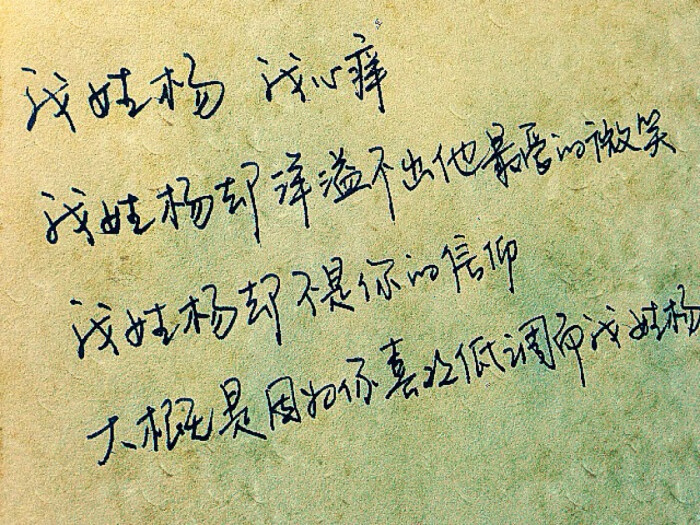 我姓杨 我心痒
我姓杨却洋溢不出他最爱的微笑
我姓杨却不是你的信仰
大概是因为你喜欢低调而我姓杨